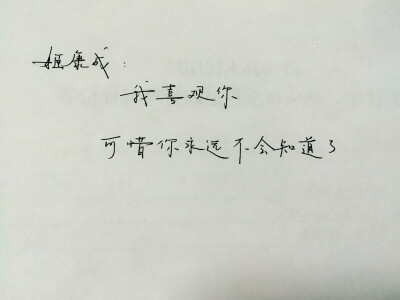 姬康成：
我喜欢你
可惜你永远不会知道了